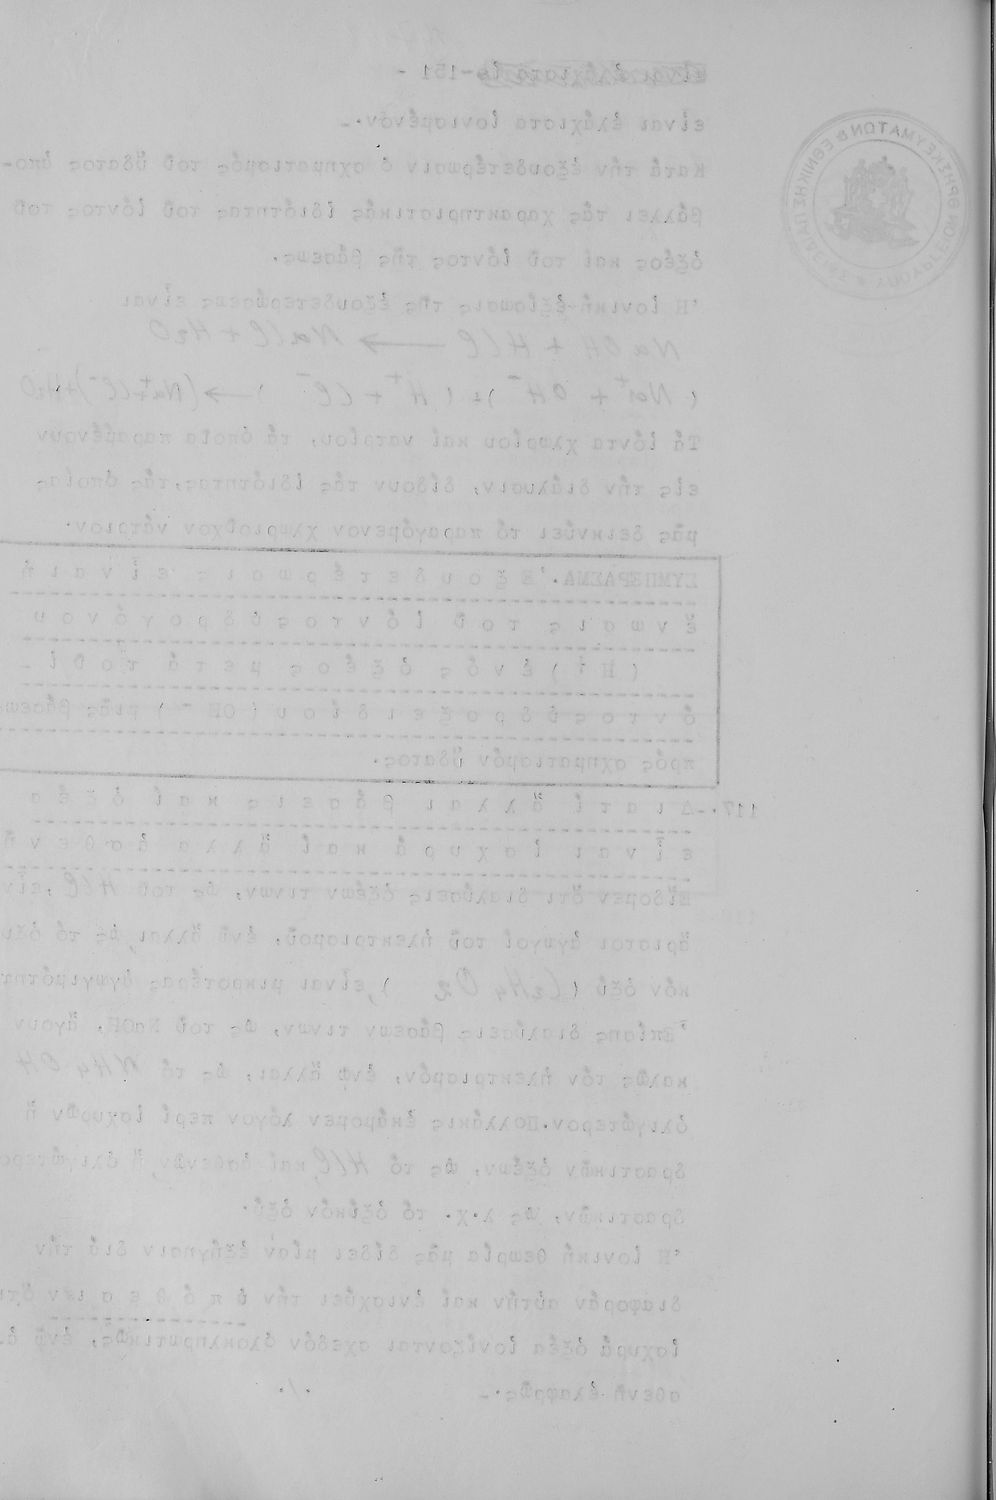 - 151 -
εἶναι ἐλάχιστα ἰονισμένον.-
Κατά τήν ἐξουδετέρωσιν ὁ σχηματισμός τοῦ ὕδατος ἀπο-
βάλλει τάς χαρακτηριστικάς ἰδιότητας τοῦ ἰόντος τοῦ
ὀξέος καί τοῦ ἰόντος τῆς βάσεως.
'Η ἰονική ἐξίσωσις τῆς ἐξουδετερώσεως εἶναι
NaOH + HCl ⟶ NaCl + H2O
( Na+ + OH- ) + ( H+ + Cl- ) ⟶ (Na+ + Cl-) + H2O
Τά ἰόντα χλωρίου καί νατρίου, τά ὁποῖα παραμένουν
εἰς τήν διάλυσιν, δίδουν τάς ἰδιότητας, τάς ὁποίας
μᾶς δεικνύει τό παραγόμενον χλωριοῦχον νάτριον.
ΣΥΜΠΕΡΑΣΜΑ. 'Ε ξ ο υ δ ε τ έ ρ ω σ ι ς ε ἶ ν α ι ἡ
ἕ ν ω σ ι ς τ ο ῦ ἰ ό ν τ ο ς ὑ δ ρ ο γ ό ν ο υ
( Η + ) ἑ ν ό ς ὀ ξ έ ο ς μ ε τ ά τ ο ῦ ἰ -
ό ν τ ο ς ὑ δ ρ ο ξ ε ι δ ί ο υ ( ΟΗ - ) μιᾶς βάσεως
πρός σχηματισμόν ὕδατος.
117.-Δ ι α τ ί ἄ λ λ α ι β ά σ ε ι ς κ α ί ὀ ξ έ α
ε ἶ ν α ι ἰ σ χ υ ρ ά κ α ί ἄ λ λ α ἀ σ θ ε ν ῆ
Εἴδομεν ὅτι διαλύσεις ὀξέων τινων, ὡς τοῦ HCl, εἶν
ἄριστοι ἀγωγοί τοῦ ἠλεκτρισμοῦ, ἐνῶ ἄλλαι, ὡς τό ὀξι
κόν ὀξύ ( C2H4O2 ), εἶναι μικροτέρας ἀγωγιμότητ
'Επίσης διαλύσεις βάσεων τινων, ὡς τοῦ NaOH, ἄγουν
καλῶς τόν ἠλεκτρισμόν, ἐνῶ ἄλλαι, ὡς τό NH4OH
ὀλιγώτερον. Πολλάκις ἐκάμομεν λόγον περί ἰσχυρῶν ἤ
δραστικῶν ὀξέων, ὡς τό HCl, καί ἀσθενῶν, ἤ ὀλιγώτερο
δραστικῶν, ὡς λ.χ. τό ὀξικόν ὀξύ.
'Η ἰονική θεωρία μᾶς δίδει μίαν ἐξήγησιν διά τήν
διαφοράν αὐτήν καί ἐνισχύει τήν ὑ π ό θ ε σ ι ν ὅτι
ἰσχυρά ὀξέα ἰονίζονται σχεδόν ὁλοκληρωτικῶς, ἐνῶ ἀ-
σθενῆ ἐλαφρῶς.-
./.